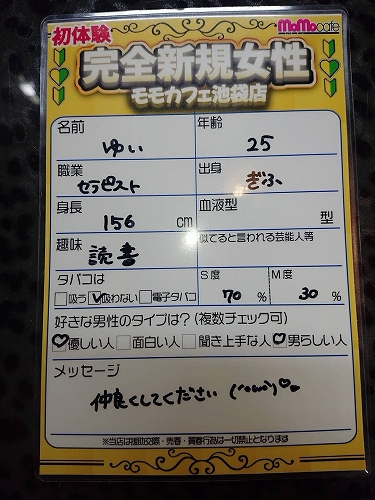 初体験
MoMocafe
完全新規女性
モモカフェ池袋店
名前 ゆい
年齢 25
職業 セラピスト
出身 ぎふ
身長 156 cm
血液型 型
趣味 読書
似てると言われる芸能人等
タバコは
吸う 吸わない 電子タバコ
S度 70 %
M度 30 %
好きな男性のタイプは?(複数チェック可)
優しい人 面白い人 聞き上手な人 男らしい人
メッセージ
仲良くしてください
※当店は援助交際・売春・買春行為は一切禁止となります